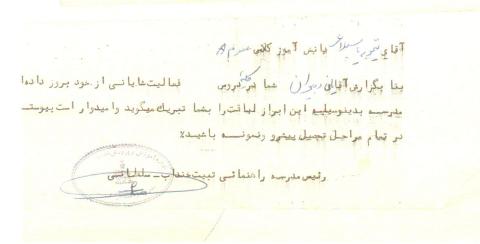 آقای دانش آموز کلاس سوم A
بنا بگزارش آقایان دبیران شما در دروس فعالیت شایانی از خود بروز داده‌اید
مدرسه بدینوسیله این ابراز لیاقت را بشما تبریک میگوید و امیدوار است پیوسته
در تمام مراحل تحصیل پیشرو و نمونه باشید٪
رئیس مدرسه راهنمائی